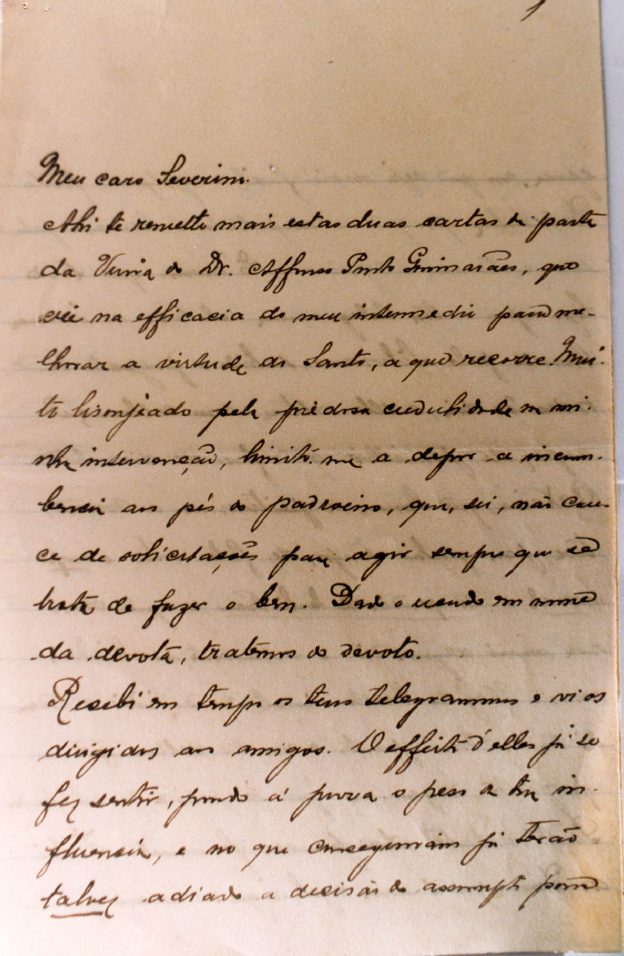 Meu caro Severino.
Ahi te remetto mais estas duas cartas da parte
da Viuva do Dr. Affonso Pinto Guimarães, que
crê na efficacia do meu intermedio para me-
lhorar a virtude do Santo, a que recorre. Mui-
to lisonjeado pela piedosa credulidade na mi-
nha intervenção, limito-me a depôr a incum-
bencia aos pés do padroeiro, que, sei, não care-
ce de solicitações para agir sempre que se
trata de fazer o bem. Dado o recado em nome
da devota, tratemos do devoto.
Recebi em tempo os teus telegrammas e vi os
dirigidos aos amigos. O effeito d'elles já se
fez sentir, pondo á prova o peso da tua in-
fluencia, e no que conseguiram já terão
talvez adiado a decisão do assumpto para